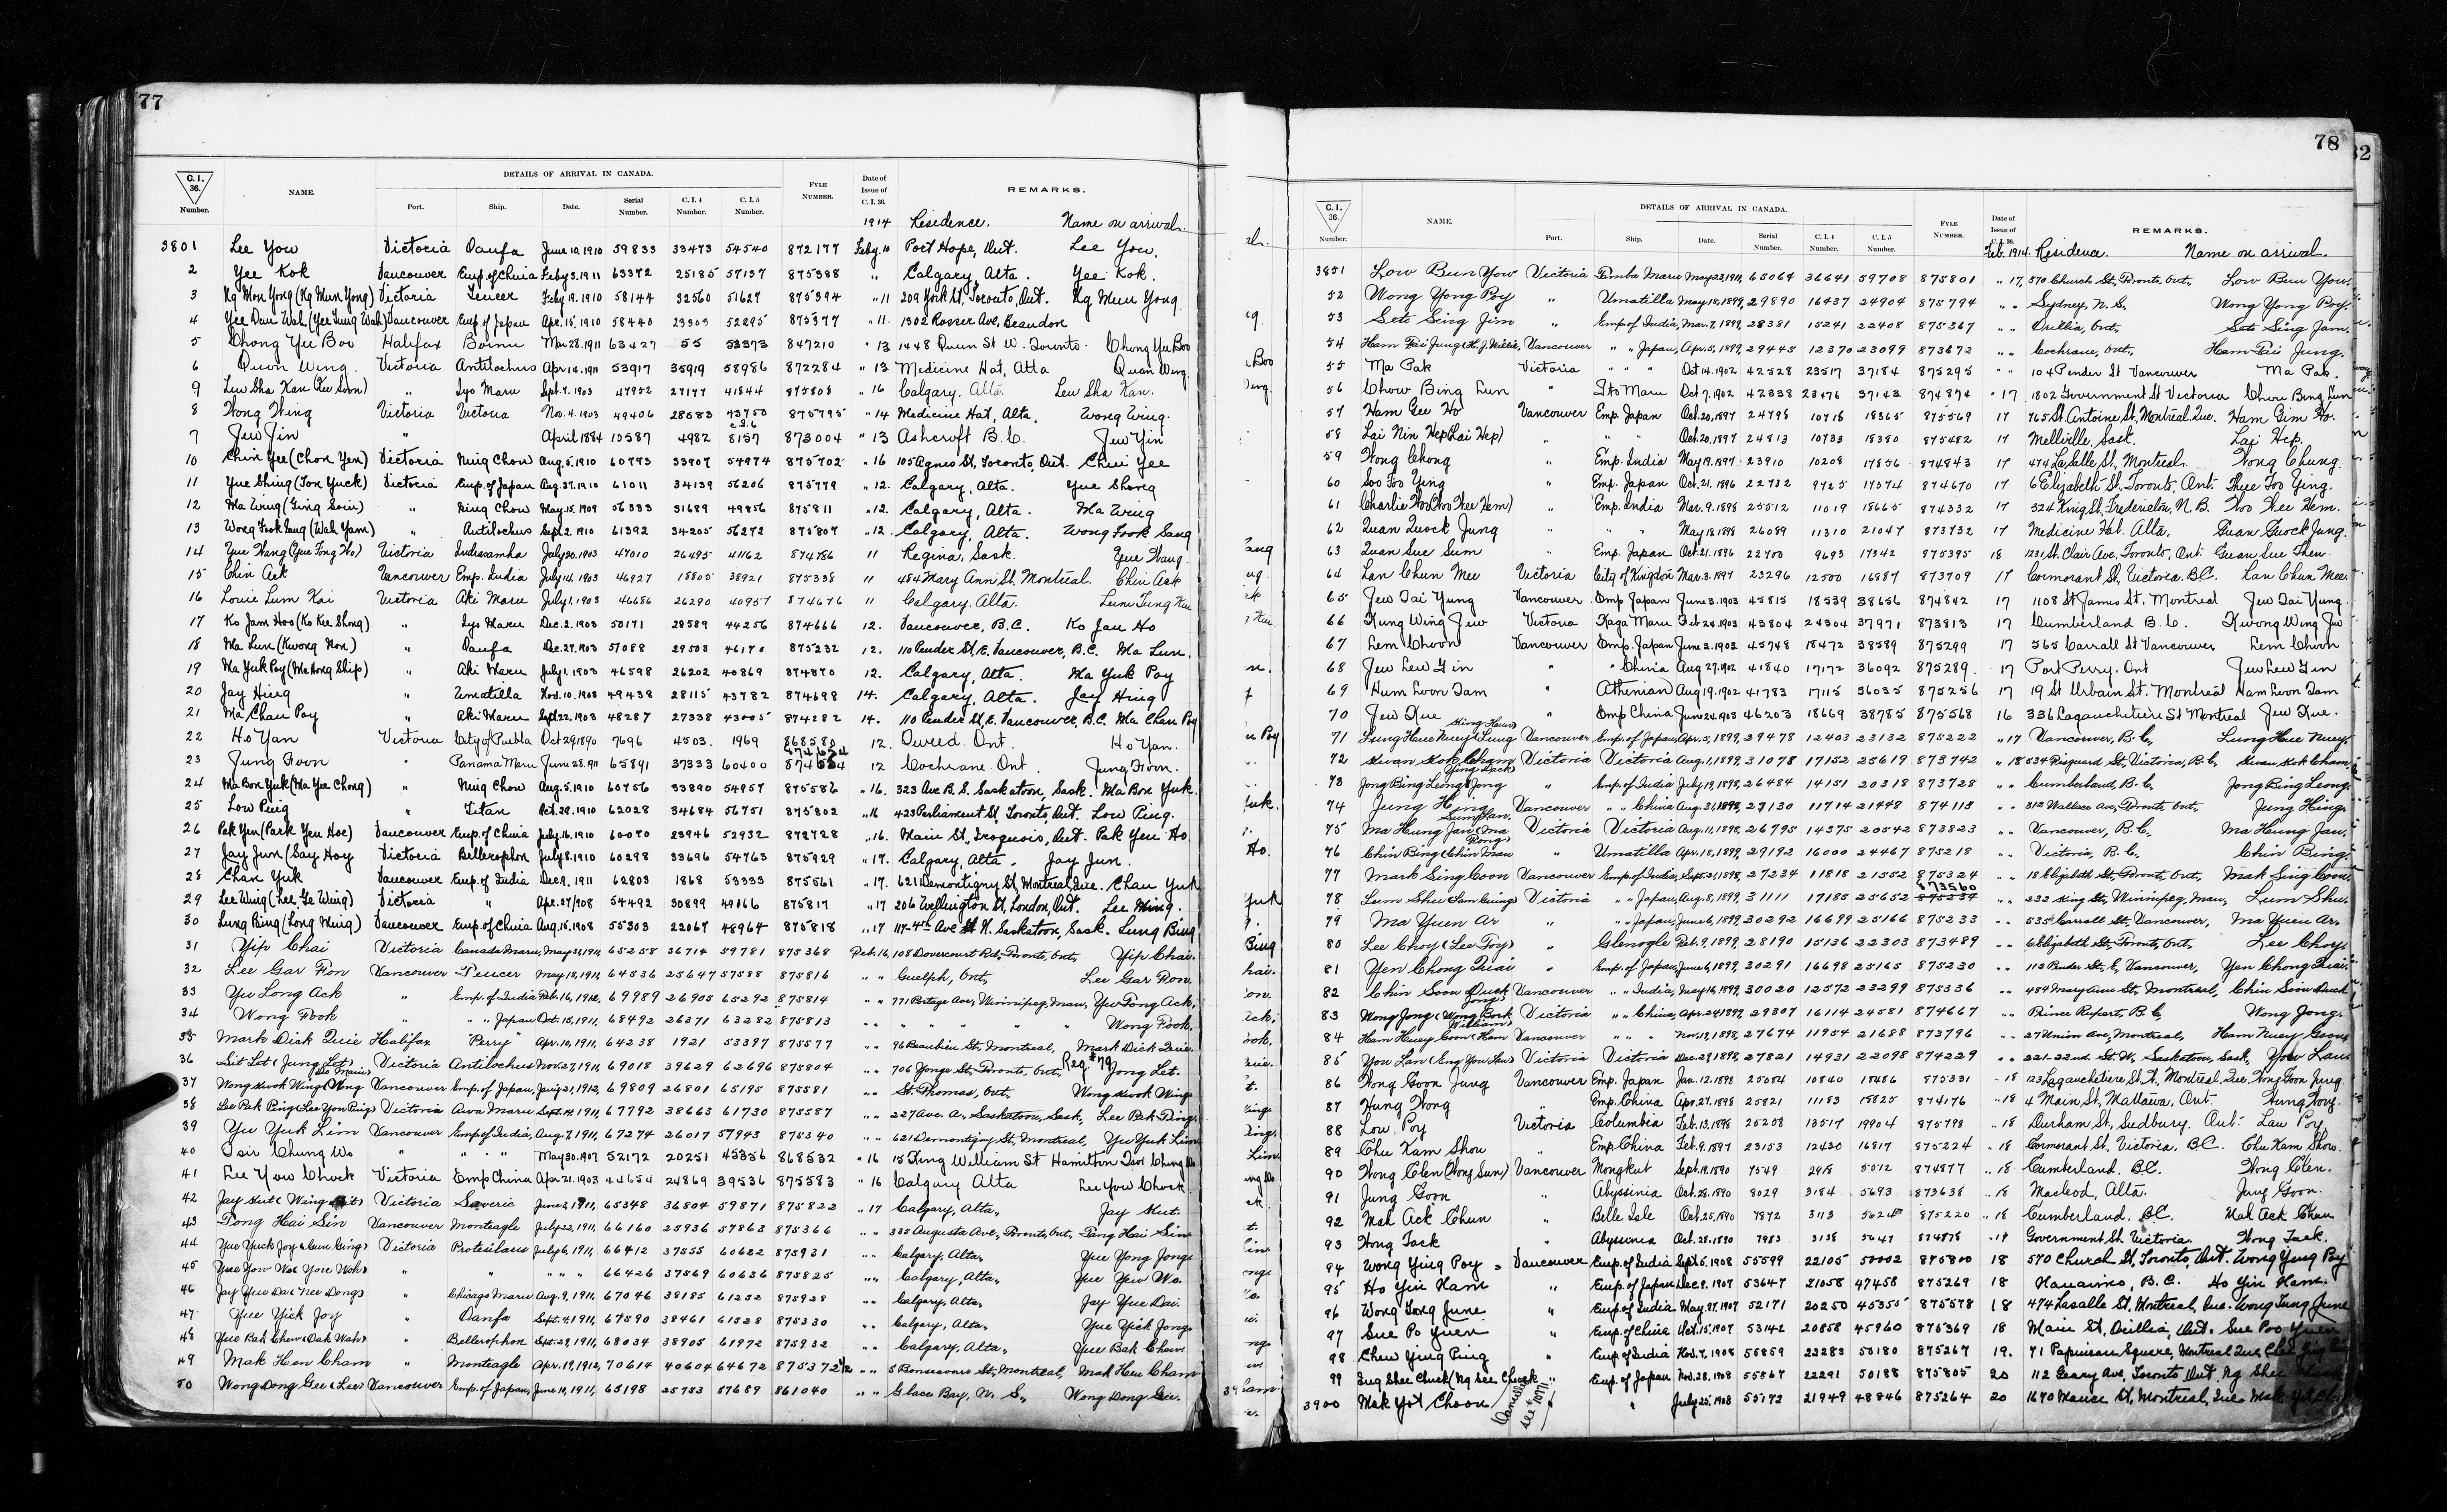 77
C. I. 36. Number. NAME. DETAILS OF ARRIVAL IN CANADA. Port. Ship. Date. Serial Number. C. I. 4 Number. C. I. 5 Number. FYLE NUMBER. Date of Issue of C. I. 36. REMARKS.
1914 Residence. Name on arrival.
3801 Lee You Victoria Oanfa June 10, 1910 59833 33473 54540 872177 Feby. 10 Port Hope, Ont. Lee You.
2 Yee Kok Vancouver Emp. of China Feby 3. 1911 63372 25185 57137 875388 " Calgary, Alta. Yee Kok.
3 Ng Mon Yong (Ng Mun Yong) Victoria Teucer Feby 19. 1910 58144 32560 51627 875394 " 11 209 York St, Toronto, Ont. Ng Mun Yong
4 Yee Dan Wah (Yee Tung Wah) Vancouver Emp of Japan Apr. 15, 1910 58440 23303 52295 875377 " 11. 1302 Rosser Ave, Brandon
5 Chong Yee Boo Halifax Bornu Mar 28. 1911 63427 55 53373 847210 " 13 1448 Queen St W. Toronto. Chong Yee Boo
6 Quon Wing. Victoria Antilochus Apr 14. 1911 53917 35919 58986 872284 " 13 Medicine Hat, Alta Quan Wing.
9 Lew Sha Kan (Lew Soon) " Iyo Maru Sept. 7. 1903 47952 27177 41844 875808 " 16 Calgary. Alta. Lew Sha Kan.
8 Wong Wing Victoria Victoria Nov. 4. 1903 49406 28083 43750 875795 " 14 Medicine Hat, Alta. Wong Wing.
7 Jew Jin " April 1884 10587 4982 C.I.6 8157 873004 " 13 Ashcroft B.C. Jew Yin
10 Chin Yee (Chon Yen) Victoria Ning Chow Aug. 5. 1910 60793 33907 54974 875702 " 16 105 Agnes St, Toronto, Ont. Chin Yee
11 Yue Shing (Tox Yuck) Victoria Emp. of Japan Aug. 27. 1910 61011 34139 56206 875779 " 12. Calgary, Alta. Yue Shong
12 Ma Wing (Ging Soin) " Ning Chow May. 15. 1909 56333 31689 49856 875811 " 12. Calgary, Alta. Ma Wing
13 Wong Fook Sang (Wah Yam) " Antilochus Sept 2. 1910 61392 34205 56272 875807 " 12. Calgary, Alta. Wong Fook Sang
14 Yue Wang (Yue Fong Wo) Victoria Indrasamha July 20. 1903 47010 26495 41162 874786 11 Regina, Sask. Yue Wang.
15 Chin Ack Vancouver Emp. India July 14. 1903 46927 18805 38921 875338 11 484 Mary Ann St, Montreal. Chin Ack
16 Louie Lum Kai Victoria Aki Maru July 1. 1903 46686 26290 40957 874676 11 Calgary, Alta.
17 Ko Jam Hoo (Ko Kee Shong) " Iyo Maru Dec. 2. 1903 50171 28589 44256 874666 12. Vancouver, B.C. Ko Jan Ho
18 Ma Lun (Kwong Non) " Oanfa Dec. 27. 1903 57088 29503 46170 875232 12. 110 Pender St, E. Vancouver, B.C. Ma Lun.
19 Ma Yuk Poy (Ma Hong Ship) " Aki Maru July 1. 1903 46598 26202 40869 874870 12. Calgary, Alta. Ma Yuk Poy
20 Jay Hing " Umatilla Nov. 10. 1903 49438 28115 43782 874698 14. Calgary, Alta. Jay Hing
21 Ma Chau Poy " Aki Maru Sept 22. 1903 48287 27338 43005 874282 14. 110 Pender St, E. Vancouver, B.C. Ma Chau Poy
22 Ho Yan Victoria City of Puebla Oct 29, 1890 7696 4503. 1969 868580 12. Tweed. Ont. Ho Yan.
23 Jung Foon " Panama Maru June 28. 1911 65891 37333 60400 874654 12 Cochrane Ont. Jung Foon.
24 Ma Bon Yuk (Ma Yee Chong) " Ning Chow Aug. 5. 1910 60756 33890 54957 875586 " 16. 323 Ave B. S. Saskatoon, Sask. Ma Bon Yuk.
25 Low Ping " Titan Oct. 28. 1910 62028 34684 56751 875802 " 16 423 Parliament St, Toronto, Ont. Low Ping.
26 Pak Yen (Park Yen Hoe) Vancouver Emp. of China July. 16. 1910 60070 23946 52932 872728 " 16. Main St., Iroquois, Ont. Pak Yen Ho.
27 Jay Jun (Say Hoy Victoria Bellerophon July 8. 1910 60298 33696 54763 875929 " 17. Calgary, Alta. Jay Jun.
28 Chan Yuk Vancouver Emp. of India Dec 9. 1911 62803 1868 53333 875561 " 17. 621 Demontigny St, Montreal, Que. Chan Yuk
29 Lee Wing (Lee Ge Wing) Victoria " Apr. 27/908 54492 30899 49166 875817 " 17 206 Wellington St, London, Ont. Lee Wing.
30 Lung Bing (Long Ming) Vancouver Emp. of China Aug. 15. 1908 55303 22067 48964 875818 " 17 117-4th Ave N. Saskatoon, Sask. Lung Bing
31 Yip Chai Victoria Canada Maru, May 31, 1911, 65258 36714 59781 875368 Feb. 16, 108 Dovercourt Rd., Toronto, Ont., Yip Chai.
32 Lee Gar Fon Vancouver Teucer May 18, 1911, 64536 25647 57588 875816 " " Guelph, Ont., Lee Gar Fon.
33 Yu Long Ack " Emp. of India Feb. 16, 1912, 69989 26905 65292 875814 " " 771 Portage Ave., Winnipeg, Man., Yu Tong Ack,
34 Wong Fook " " " Japan Oct. 15, 1911, 68492 26371 63282 875813 " " " " " Wong Fook.
35 Mark Dick Quie Halifax "Perry" Apr. 10, 1911, 64238 1921 53397 875577 " " 96 Beaubien St., Montreal, Mark Dick Quie.
36 Sit Let (Jung Let) Victoria Antilochus Nov. 27, 1911, 69018 39629 62696 875804 " " 706 Yonge St., Toronto, Ont., Reg. #79 Jong Let.
37 Wong Kwok Wing (Wong Vancouver Emp. of Japan, Jan. 21, 1912, 69809 26801 65195 875581 " " St. Thomas, Ont., Wong Kwok Wing.
38 Lee Pak Ping (Lee Yon Ping) Victoria Awa Maru Sept. 14, 1911, 67792 38663 61730 875587 " " 227 Ave. A., Saskatoon, Sask., Lee Pak Ping.
39 Yu Yuk Lim Vancouver Emp. of India, Aug. 7, 1911, 67274 26017 57943 875340 " " 621 Demontigny St., Montreal, Yu Yuk Lim
40 Tsir Chung Wo " " " " May 30. 1907 52172 20251 45356 868532 " 16 15 King William St Hamilton Tsoi Chung Wo
41 Lee You Chuck Victoria Emp China Apr 21. 1903 44654 24869 39536 875583 " 16 Calgary Alta Lee You Chuck
42 Jay Kut (Wing Sit) Victoria Suveric June 2, 1911, 65348 36804 59871 875822 " 17 Calgary, Alta., Jay Kut.
43 Pong Hai Sin Vancouver Monteagle July 22, 1911, 66160 25936 57863 875366 " " 335 Augusta Ave., Toronto, Ont., Pang Hai Sin
44 Yue Yuck Joy (Cun Ging) Victoria Protesilaus July 6, 1911, 66412 37555 60622 875931 " " Calgary, Alta., Yue Yong Jong.
45 Yue Yow Wo (Youe Woh) " " " " " 66426 37569 60636 875825 " " Calgary, Alta., Yue Yew Wo.
46 Jay Yue Dai (Nee Dong) " Chicago Maru Aug. 9, 1911, 67046 38185 61252 875928 " " Calgary, Alta., Jay Yue Dai.
47 Yue Yick Joy " Oanfa Sept. 4, 1911, 67590 38461 61528 875330 " " Calgary, Alta., Yue Yick Jong.
48 Yue Bak Chew (Oak Wah) " Bellerophon Sept. 29, 1911, 68034 38905 61972 875932 " " Calgary, Alta., Yue Bak Chew.
49 Mak Hen Cham " Monteagle Apr. 19, 1912, 70614 40604 64672 875372½ " " 5 Bonsecours St., Montreal, Mak Hew Cham
50 Wong Dong Gee (Lee) Vancouver Emp. of Japan, June 10, 1911, 65198 25753 57689 861040 " " Glace Bay, N. S., Wong Dong Gee.
78
C. I. 36. Number. NAME. DETAILS OF ARRIVAL IN CANADA. Port. Ship. Date. Serial Number. C. I. 4 Number. C. I. 5 Number. FYLE NUMBER. Date of Issue of C. I. 36. REMARKS.
Feb. 1914. Residence. Name on arrival.
3851 Low Bun You Victoria Tamba Maru May 23, 1911, 65064 36641 59708 875801 " 17, 570 Church St., Toronto, Ont., Low Bun You.
52 Wong Yong Poy " Umatilla May 18, 1899, 29890 16437 24904 875794 " " Sydney, N. S., Wong Yong Poy.
53 Seto Sing Jim " Emp. of India, Mar. 7, 1899, 28381 15241 22408 875367 " " Orillia, Ont., Seto Sing Jam.
54 Ham Fai Jung (H. J. Willie, Vancouver " " Japan, Apr. 5, 1899, 29445 12370 23099 873672 " " Cochrane, Ont., Ham Fai Jung.
55 Ma Pak Victoria " " " Oct 14. 1902 42528 23517 37184 875295 " " 104 Pender St Vancouver Ma Pak.
56 Chow Bing Lun " Ito Maru Oct 7. 1902 42338 23476 37143 874874 " 17 1802 Government St Victoria Chow Bing Lun
57 Ham Gee Ho Vancouver Emp. Japan Oct. 20, 1897 24798 10716 18365 875569 17 765 St. Antoine St, Montreal, Que. Ham Gim Ho.
58 Lai Nin Hep (Lai Hep) " " " Oct. 20. 1897 24813 10733 18380 875482 17 Mellville, Sask. Lai Hep.
59 Wong Chong " Emp. India May 19. 1897 23910 10208 17856 874843 17 474 LaSalle St, Montreal. Wong Chung.
60 Soo Foo Ying " Emp. Japan Oct. 21. 1896 22732 9725 17374 874670 17 6 Elizabeth St, Toronto, Ont. Thue Foo Ying.
61 Charlie Woo (Woo Kee Hem) " Emp. India Mar. 9. 1898 25512 11019 18665 874332 17 324 King St, Fredericton, N. B. Woo Kee Hem.
62 Quan Quock Jung " " " May 18. 1898 26089 11310 21047 873732 17 Medicine Hat. Alta, Quan Quock Jung.
63 Quan Sue Sum " Emp. Japan Oct. 21. 1896 22700 9693 17342 875395 18 1231 St. Clair Ave, Toronto, Ont. Quan Sue Shen.
64 Lan Chun Mee Victoria City of Kingston Mar. 3. 1897 23296 12500 16887 873709 17 Cormorant St, Victoria. B.C. Lan Chun Mee.
65 Jew Tai Yung Vancouver Emp Japan June 3. 1903 45815 18539 38656 874842 17 1108 St James St. Montreal Jew Tai Yung.
66 Kung Wing Jew Victoria Kaga Maru Feb 24. 1903 43804 24304 37971 873813 17 Cumberland B.C. Kwong Wing Jew
67 Lem Choon Vancouver Emp. Japan June 3. 1903 45748 18472 38589 875299 17 565 Carrall St Vancouver Lem Choon
68 Jew Lew Gin " " China Aug 27. 1902 41840 17172 36092 875289. 17 Port Perry. Ont Jew Lew Gin
69 Hum Loon Tam " Athenian Aug 19. 1902 41783 17115 36035 875256 17 19 St Urbain St. Montreal Ham Loon Tam
70 Jew Kue " Emp China June 24. 1903 46203 18669 38785 875568 16 336 Lagauchetiere St Montreal Jew Kue.
71 Lung Hue Nuey (Lung Vancouver Emp. of Japan, Apr. 5, 1899, 29478 12403 23132 875222 " 17 Vancouver, B. C., Lung Hue Nuey.
72 Kwan Kok Cham Victoria Victoria Aug. 1, 1899, 31078 17152 25619 873742 " 18 534 Pisguard St., Victoria, B. C., Kwan Kok Cham.
73 Jong Bing Leong (Jong " Emp. of India July 19, 1898, 26484 14151 20318 873728 " " Cumberland, B. C., Jong Bing Leong.
74 Jung Hing Vancouver " " China Aug. 31, 1898, 27130 11714 21448 874113 " " 312 Wallace Ave., Toronto, Ont., Jung Hing.
75 Ma Hung Jan (Ma Victoria Victoria Aug. 11, 1898, 26795 14375 20542 873823 " " Vancouver, B. C., Ma Hung Jan.
76 Chin Bing (Chin Mau " Umatilla Apr. 18, 1899, 29192 16000 24467 875218 " " Victoria, B. C., Chin Bing.
77 Mark Sing Coon Vancouver Emp. of India, Sept. 21, 1898, 27234 11818 21552 875324 " " 18 Elizabeth St., Toronto, Ont., Mak Sing Coon.
78 Lum Shu (Sam Ging) Victoria " " Japan, Aug. 8, 1899, 31111 17185 25652 873560 " " 232 King St., Winnipeg, Man., Lum Shu.
79 Ma Yuen Ar " " " Japan, June 6, 1899, 30292 16699 25166 875233 " " 535 Carrall St., Vancouver, Ma Yuen Ar.
80 Lee Choy (Lee Toy) " Glenogle Feb. 9, 1899, 28190 15136 22303 873489 " " 6 Elizabeth St., Toronto, Ont., Lee Choy.
81 Yen Chong Quai " Emp. of Japan, June 6, 1899, 30291 16698 25165 875230 " " 113 Pender St., E, Vancouver, Yen Chong Quai.
82 Chin Soon Duck Vancouver " " India, May 16, 1899, 30020 12572 23299 875336 " " 484 Mary Ann St., Montreal, Chin Soon Duck
83 Wong Jong (Wong Bork Victoria " " China, Apr. 24, 1899, 29307 16114 24581 874667 " " Prince Rupert, B. C, Wong Jong.
84 Ham Huey Goon (Ham Vancouver " " " Nov. 19, 1898, 27674 11954 21688 873796 " " 27 Union Ave., Montreal, Ham Huey Goon.
85 You Lan (Eng You Lan) Victoria Victoria Dec. 29, 1898, 27821 14931 22098 874229 " " 221-22nd. St. W., Saskatoon, Sask, You Lan
86 Wong Goon Jung Vancouver Emp. Japan Jan. 12. 1898 25084 10840 18486 875331 " 18 123 Lagauchetiere St. W., Montreal, Que. Wong Goon Jung.
87 Hung Wong " Emp. China Apr. 27. 1898 25821 11183 18825 874176 " 18 4 Main St., Mattawa, Ont Hung Wong.
88 Lou Poy Victoria Columbia Feb. 13, 1898 25258 13517 19904 875798 " 18 Durham St., Sudbury. Ont. Lau Poy,
89 Chu Kam Shou " Emp. China Feb. 9. 1897 23153 12430 16817 875224 " 18 Cormorant St, Victoria. B.C. Chu Kam Show.
90 Wong Clen (Wong Sun) Vancouver Mongkut Sept. 19. 1890 7549 2918 5072 874877 " 18 Cumberland. B.C. Wong Clen.
91 Jung Goon " Abyssinia Oct. 28. 1890 8029 3184 5693 873638 " 18 Macleod, Alta. Jung Goon.
92 Mak Ack Chun " Belle Isle Oct. 25, 1890 7872 3113 5624 875220 " 18 Cumberland. B.C. Mak Ack Chun
93 Wong Tack " Abyssinia Oct. 28. 1890 7983 3138 5647 874878 " 18 Government St. Victoria. Wong Tack.
94 Wong Ying Poy Vancouver Emp. of India Sept. 5. 1908 55599 22105 50002 875800 18 570 Church St, Toronto, Ont. Wong Yung Poy
95 Ho Yin Ham " Emp. of Japan Dec. 9. 1907 53647 21058 47458 875269 18 Nanaimo, B. C. Ho Yin Ham.
96 Wong Tong June " Emp. of India May. 27. 1907 52171 20250 45355 875578 18 474 Lasalle St, Montreal, Que. Wong Tung June
97 Sue Po Yuen " Emp. of China Oct. 15. 1907 53142 20858 45960 875369 18 Main St, Orillia, Ont. Sue Poo Yuen
98 Chew Ying Ping " Emp. of India Nov. 7. 1908 55859 22283 50180 875267 19. 71 Papineau Square, Montreal Que.
99 Eug Shee Chuck (Ng See Chuck " Emp. of Japan Nov. 28. 1908 55867 22291 50188 875805 20 112 Geary Ave, Toronto, Ont. Ng Shee
3900 Mak Yat Choon Cancelled see " " July 25. 1908 55172 21949 48846 875264 20 1670 Mance St, Montreal, Que.